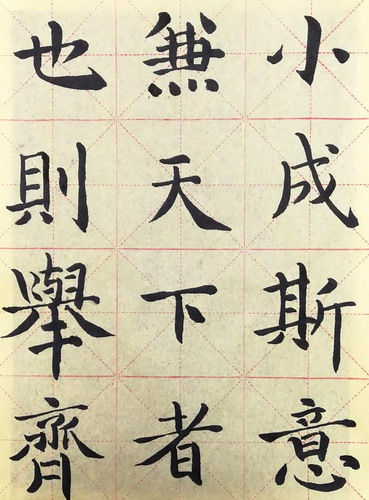 小成斯意
無天下者
也則舉齊